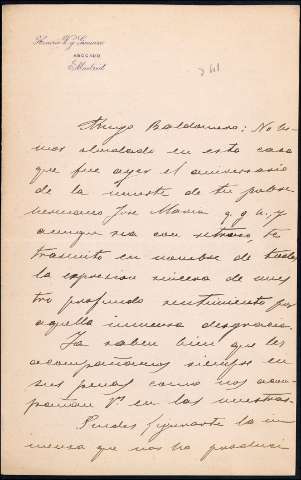 Abogado
Madrid
Amigo Baldomero: No he-
mos olvidado en esta casa
que fue ayer el aniversario
de la muerte de tu pobre
hermano José María q. g. h., y
aunque sea con retraso, te
trasmito en nombre de todos
la expresion sincera de nues
tro profundo sentimiento por
aquella inmensa desgracia.
Ya saben bien que les
acompañamos siempre en
sus penas como nos acom
pañan Vs en las nuestras.
Puedes figurarte lo in
mensa que nos ha produci